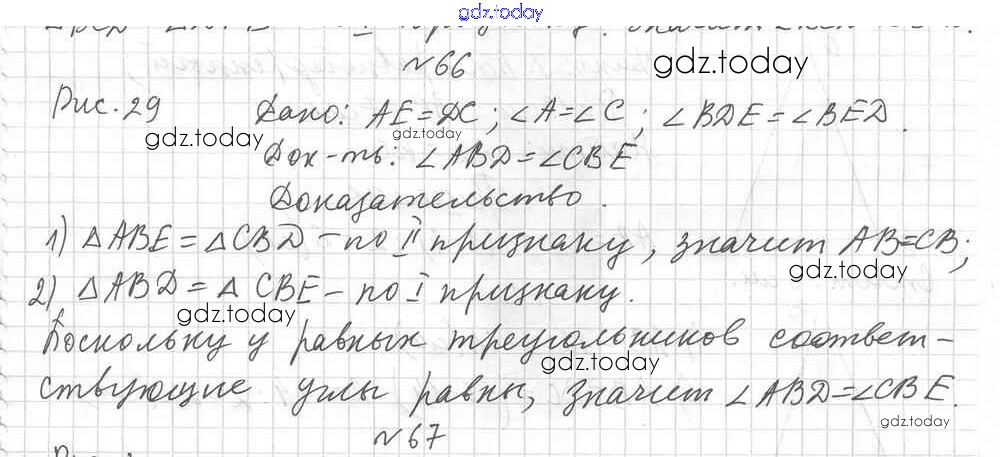 gdz.today
№66
gdz.today
Рис. 29 Дано: AE=DC; ∠A=∠C; ∠BDE=∠BED.
gdz.today gdz.today
Док-ть: ∠ABD=∠CBE
Доказательство.
1) △ABE=△CBD - по II признаку, значит AB=CB;
gdz.today
2) △ABD=△CBE - по I признаку.
gdz.today
Поскольку у равных треугольников соответ-
gdz.today
ствующие углы равны, значит ∠ABD=∠CBE.
gdz.today
№67